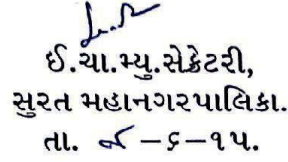 ઈ.ચા.મ્યુ.સેક્રેટરી,
સુરત મહાનગરપાલિકા.
તા. ૯ –૬–૧૫.